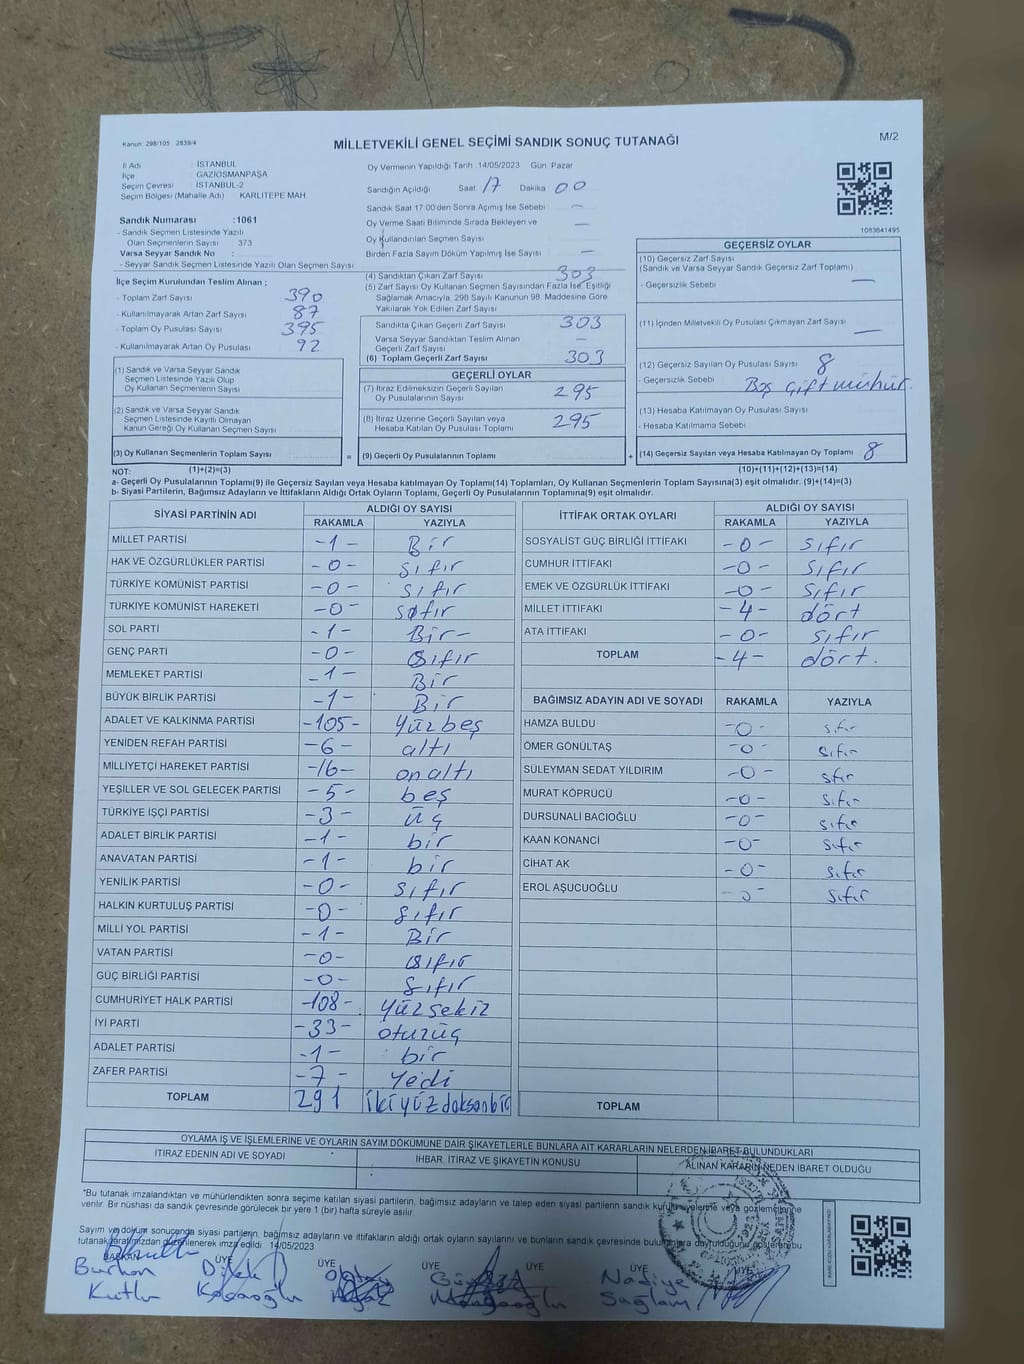 Kanun: 298/105 2839/4
MİLLETVEKİLİ GENEL SEÇİMİ SANDIK SONUÇ TUTANAĞI
M/2
İl Adı İSTANBUL
İlçe GAZİOSMANPAŞA
Seçim Çevresi İSTANBUL-2
Seçim Bölgesi (Mahalle Adı) KARLITEPE MAH
Sandık Numarası :1061
- Sandık Seçmen Listesinde Yazılı
Olan Seçmenlerin Sayısı : 373
Varsa Seyyar Sandık No :
- Seyyar Sandık Seçmen Listesinde Yazılı Olan Seçmen Sayısı
Oy Vermenin Yapıldığı Tarih :14/05/2023 Gün Pazar
Sandığın Açıldığı Saat 17 Dakika 00
Sandık Saat 17:00'den Sonra Açılmış İse Sebebi -
Oy Verme Saati Bitiminde Sırada Bekleyen ve -
Oy Kullandırılan Seçmen Sayısı
Birden Fazla Sayım Döküm Yapılmış İse Sayısı -
1083641495
İlçe Seçim Kurulundan Teslim Alınan ;
- Toplam Zarf Sayısı 390
- Kullanılmayarak Artan Zarf Sayısı 87
- Toplam Oy Pusulası Sayısı 395
- Kullanılmayarak Artan Oy Pusulası 92
(1) Sandık ve Varsa Seyyar Sandık
Seçmen Listesinde Yazılı Olup
Oy Kullanan Seçmenlerin Sayısı
(2) Sandık ve Varsa Seyyar Sandık
Seçmen Listesinde Kayıtlı Olmayan
Kanun Gereği Oy Kullanan Seçmen Sayısı
(3) Oy Kullanan Seçmenlerin Toplam Sayısı =
(4) Sandıktan Çıkan Zarf Sayısı 303
(5) Zarf Sayısı Oy Kullanan Seçmen Sayısından Fazla İse, Eşitliği
Sağlamak Amacıyla, 298 Sayılı Kanunun 98. Maddesine Göre
Yakılarak Yok Edilen Zarf Sayısı
Sandıkta Çıkan Geçerli Zarf Sayısı 303
Varsa Seyyar Sandıktan Teslim Alınan
Geçerli Zarf Sayısı -
(6) Toplam Geçerli Zarf Sayısı 303
GEÇERLİ OYLAR
(7) İtiraz Edilmeksizin Geçerli Sayılan
Oy Pusulalarının Sayısı 295
(8) İtiraz Üzerine Geçerli Sayılan veya
Hesaba Katılan Oy Pusulası Toplamı 295
(9) Geçerli Oy Pusulalarının Toplamı +
GEÇERSİZ OYLAR
(10) Geçersiz Zarf Sayısı
(Sandık ve Varsa Seyyar Sandık Geçersiz Zarf Toplamı)
- Geçersizlik Sebebi -
(11) İçinden Milletvekili Oy Pusulası Çıkmayan Zarf Sayısı -
(12) Geçersiz Sayılan Oy Pusulası Sayısı 8
- Geçersizlik Sebebi Boş çift mühür.
(13) Hesaba Katılmayan Oy Pusulası Sayısı
- Hesaba Katılmama Sebebi
(14) Geçersiz Sayılan veya Hesaba Katılmayan Oy Toplamı 8
NOT: (1)+(2)=(3) (10)+(11)+(12)+(13)=(14)
a- Geçerli Oy Pusulalarının Toplamı(9) ile Geçersiz Sayılan veya Hesaba katılmayan Oy Toplamı(14) Toplamları, Oy Kullanan Seçmenlerin Toplam Sayısına(3) eşit olmalıdır. (9)+(14)=(3)
b- Siyasi Partilerin, Bağımsız Adayların ve İttifakların Aldığı Ortak Oyların Toplamı, Geçerli Oy Pusulalarının Toplamına(9) eşit olmalıdır.
SİYASİ PARTİNİN ADI ALDIĞI OY SAYISI
RAKAMLA YAZIYLA
MİLLET PARTİSİ -1- Bir
HAK VE ÖZGÜRLÜKLER PARTİSİ -0- sıfır
TÜRKİYE KOMÜNİST PARTİSİ -0- sıfır
TÜRKİYE KOMÜNİST HAREKETİ -0- sıfır
SOL PARTİ -1- Bir-
GENÇ PARTİ -0- Sıfır
MEMLEKET PARTİSİ -1- Bir
BÜYÜK BİRLİK PARTİSİ -1- Bir
ADALET VE KALKINMA PARTİSİ -105- Yüzbeş
YENİDEN REFAH PARTİSİ -6- altı
MİLLİYETÇİ HAREKET PARTİSİ -16- onaltı
YEŞİLLER VE SOL GELECEK PARTİSİ -5- beş
TÜRKİYE İŞÇİ PARTİSİ -3- üç
ADALET BİRLİK PARTİSİ -1- bir
ANAVATAN PARTİSİ -1- bir
YENİLİK PARTİSİ -0- sıfır
HALKIN KURTULUŞ PARTİSİ -0- sıfır
MİLLİ YOL PARTİSİ -1- Bir
VATAN PARTİSİ -0- sıfır
GÜÇ BİRLİĞİ PARTİSİ -0- sıfır
CUMHURİYET HALK PARTİSİ -108- Yüzsekiz
İYİ PARTİ -33- otuzüç
ADALET PARTİSİ -1- bir
ZAFER PARTİSİ -7- Yedi
TOPLAM 291 ikiyüzdoksanbir
İTTİFAK ORTAK OYLARI ALDIĞI OY SAYISI
RAKAMLA YAZIYLA
SOSYALİST GÜÇ BİRLİĞİ İTTİFAKI -0- sıfır
CUMHUR İTTİFAKI -0- sıfır
EMEK VE ÖZGÜRLÜK İTTİFAKI -0- sıfır
MİLLET İTTİFAKI -4- dört
ATA İTTİFAKI -0- sıfır
TOPLAM -4- dört.
BAĞIMSIZ ADAYIN ADI VE SOYADI RAKAMLA YAZIYLA
HAMZA BULDU -0- sıfır
ÖMER GÖNÜLTAŞ -0- sıfır
SÜLEYMAN SEDAT YILDIRIM -0- sfır
MURAT KÖPRÜCÜ -0- sıfır
DURSUNALİ BACIOĞLU -0- sıfır
KAAN KONANCİ -0- sıfır
CİHAT AK -0- sıfır
EROL AŞUCUOĞLU -0- sıfır
TOPLAM
OYLAMA İŞ VE İŞLEMLERİNE VE OYLARIN SAYIM DÖKÜMÜNE DAİR ŞİKAYETLERLE BUNLARA AİT KARARLARIN NELERDEN İBARET BULUNDUKLARI
İTİRAZ EDENİN ADI VE SOYADI İHBAR, İTİRAZ VE ŞİKAYETİN KONUSU ALINAN KARARIN NEDEN İBARET OLDUĞU
*Bu tutanak imzalandıktan ve mühürlendikten sonra seçime katılan siyasi partilerin, bağımsız adayların ve talep eden siyasi partilerin sandık kurulu üyelerine veya gözlemcilerine
verilir. Bir nüshası da sandık çevresinde görülecek bir yere 1 (bir) hafta süreyle asılır.
Sayım ve döküm sonucunda siyasi partilerin, bağımsız adayların ve ittifakların aldığı ortak oyların sayılarını ve bunların sandık çevresinde bulunanlara duyrulduğunu gösteren bu
tutanak tarafımızdan düzenlenerek imza edildi 14/05/2023
BAŞKAN ÜYE ÜYE ÜYE ÜYE ÜYE
Burhan Dilek Nadiye
Kutlu Sağlam